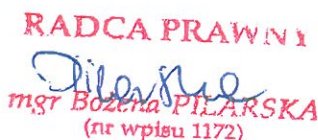 RADCA PRAWNY
mgr Bożena PILARSKA
(nr wpisu 1172)